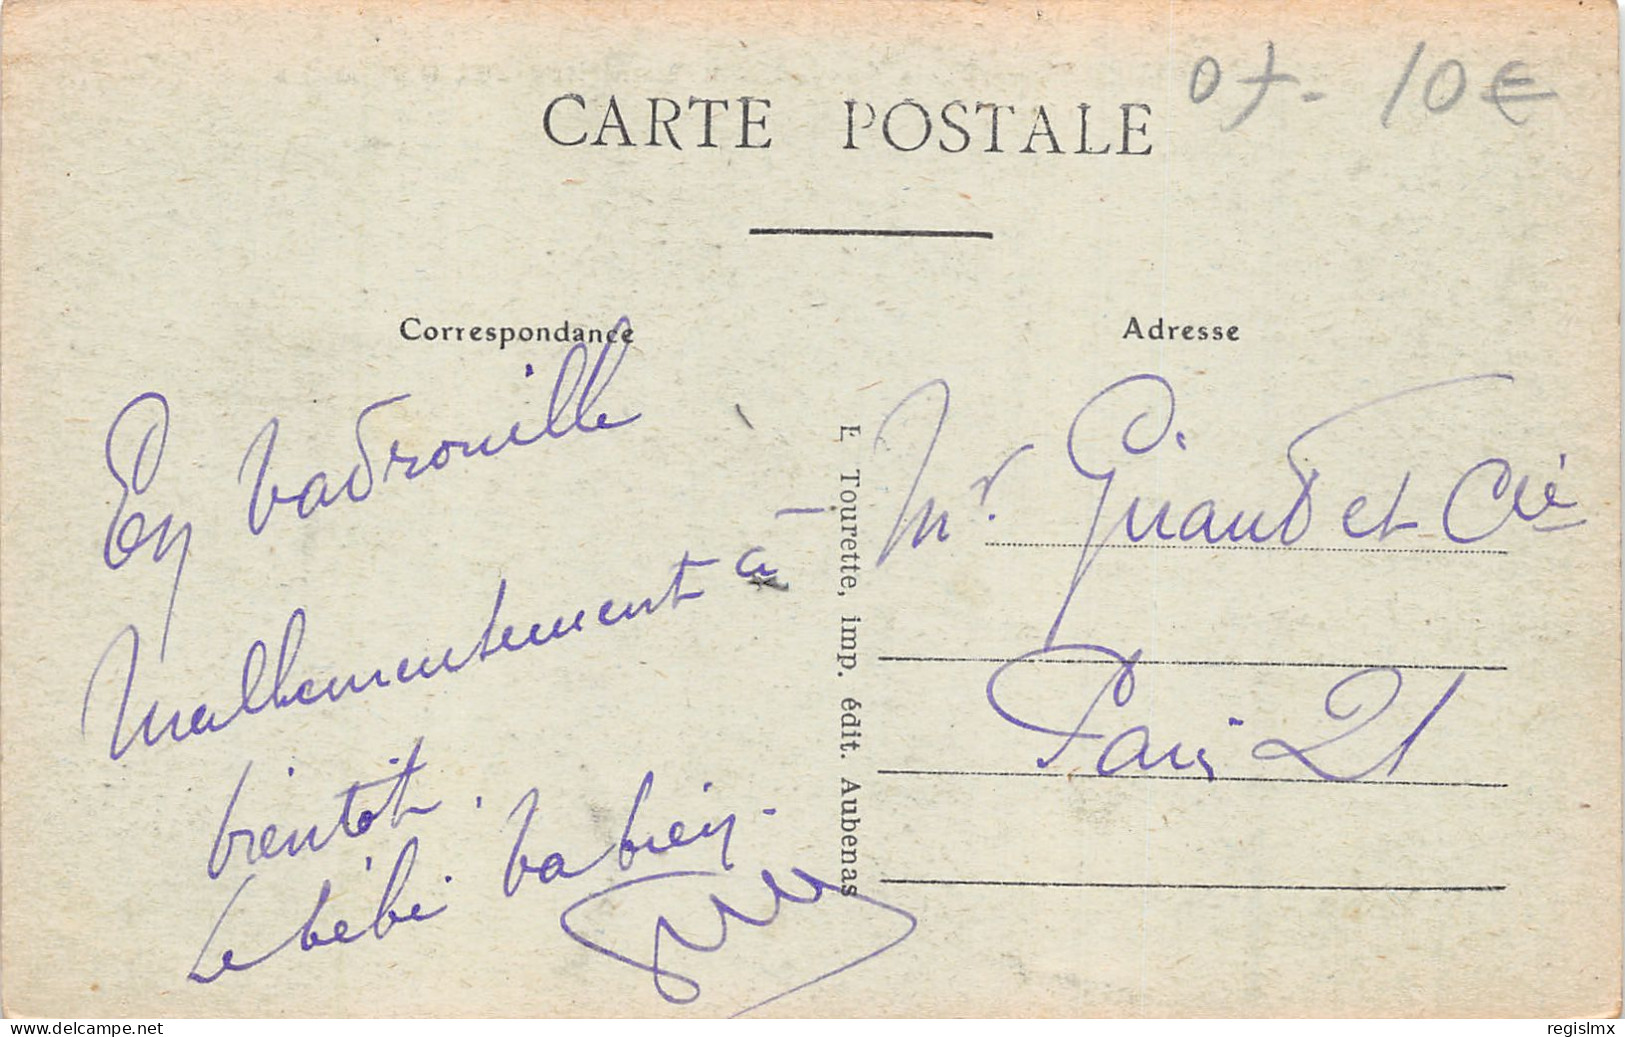 07- 10€
CARTE POSTALE
Correspondance
Adresse
En vadrouille
malheureusement à
bientôt.
Le bébé va bien.
E. Tourette, imp. édit. Aubenas
Mr. Giraud et Cie
Paris 21
www.delcampe.net
regislmx